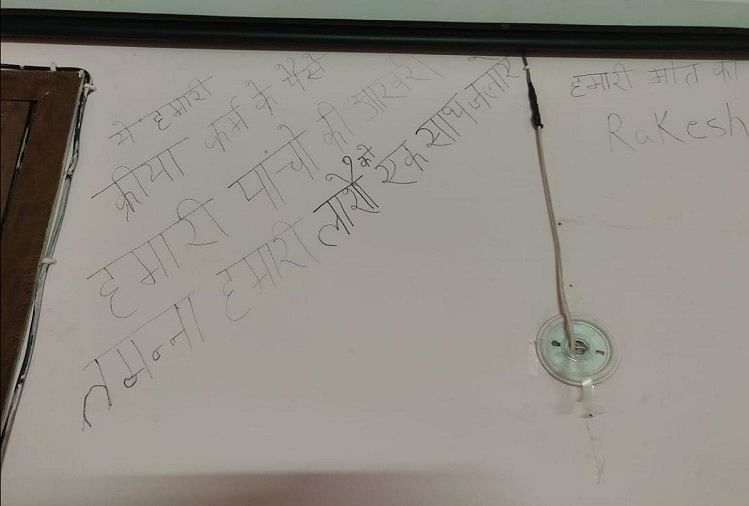 ये हमारी
क्रीया कर्म के पैसे
हमारी पांचो की आखरी
तमन्ना हमारी लाशों को एक साथ जलारे
हमारी मोत का
Rakesh